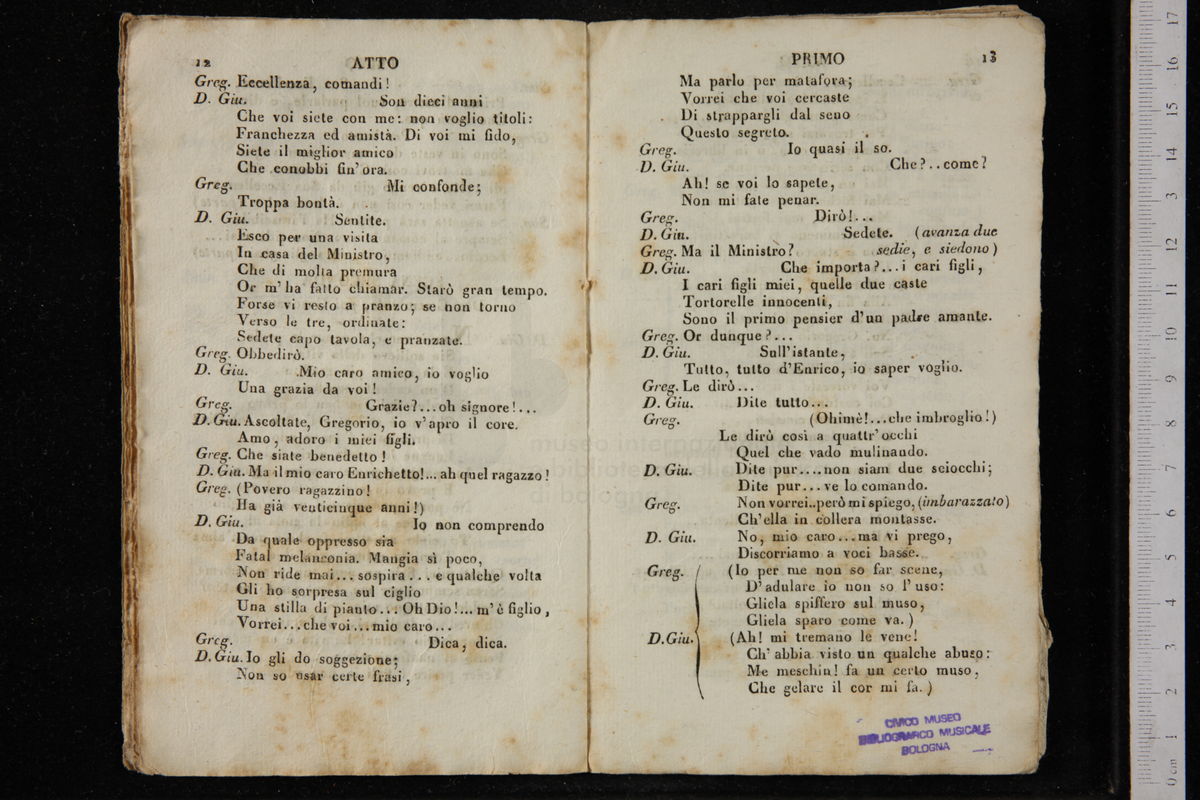 12 ATTO
Greg. Eccellenza, comandi!
D. Giu. Son dieci anni
Che voi siete con me: non voglio titoli:
Franchezza ed amistà. Di voi mi fido,
Siete il miglior amico
Che conobbi fin'ora.
Greg. Mi confonde;
Troppa bontà.
D. Giu. Sentite.
Esco per una visita
In casa del Ministro,
Che di molta premura
Or m'ha fatto chiamar. Starò gran tempo.
Forse vi resto a pranzo; se non torno
Verso le tre, ordinate:
Sedete capo tavola, e pranzate.
Greg. Obbedirò.
D. Giu. Mio caro amico, io voglio
Una grazia da voi!
Greg. Grazie?...oh signore!...
D. Giu. Ascoltate, Gregorio, io v'apro il core.
Amo, adoro i miei figli.
Greg. Che siate benedetto!
D. Giu. Ma il mio caro Enrichetto!... ah quel ragazzo!
Greg. (Povero ragazzino!
Ha già venticinque anni!)
D. Giu. Io non comprendo
Da quale oppresso sia
Fatal melanconia. Mangia sì poco,
Non ride mai... sospira... e qualche volta
Gli ho sorpresa sul ciglio
Una stilla di pianto... Oh Dio!... m'è figlio,
Vorrei...che voi...mio caro...
Greg. Dica, dica.
D. Giu. Io gli do soggezione;
Non so usar certe frasi,
PRIMO 13
Ma parlo per matafora;
Vorrei che voi cercaste
Di strappargli dal seno
Questo segreto.
Greg. Io quasi il so.
D. Giu. Che?..come?
Ah! se voi lo sapete,
Non mi fate penar.
Greg. Dirò!...
D. Giu. Sedete. (avanza due
Greg. Ma il Ministro? sedie, e siedono)
D. Giu. Che importa?...i cari figli,
I cari figli miei, quelle due caste
Tortorelle innocenti,
Sono il primo pensier d'un padre amante.
Greg. Or dunque?...
D. Giu. Sull'istante,
Tutto, tutto d'Enrico, io saper voglio.
Greg. Le dirò...
D. Giu. Dite tutto...
Greg. (Ohimè!...che imbroglio!)
Le dirò così a quattr'occhi
Quel che vado mulinando.
D. Giu. Dite pur....non siam due sciocchi;
Dite pur...ve lo comando.
Greg. Non vorrei..però mi spiego, (imbarazzato)
Ch'ella in collera montasse.
D. Giu. No, mio caro...ma vi prego,
Discorriamo a voci basse.
Greg. (Io per me non so far scene,
D'adulare io non so l'uso:
Gliela spiffero sul muso,
Gliela sparo come va.)
D. Giu. (Ah! mi tremano le vene!
Ch'abbia visto un qualche abuso:
Me meschin! fa un certo muso,
Che gelare il cor mi fa.)
CIVICO MUSEO
BIBLIOGRAFICO MUSICALE
BOLOGNA
0 cm 1 2 3 4 5 6 7 8 9 10 11 12 13 14 15 16 17